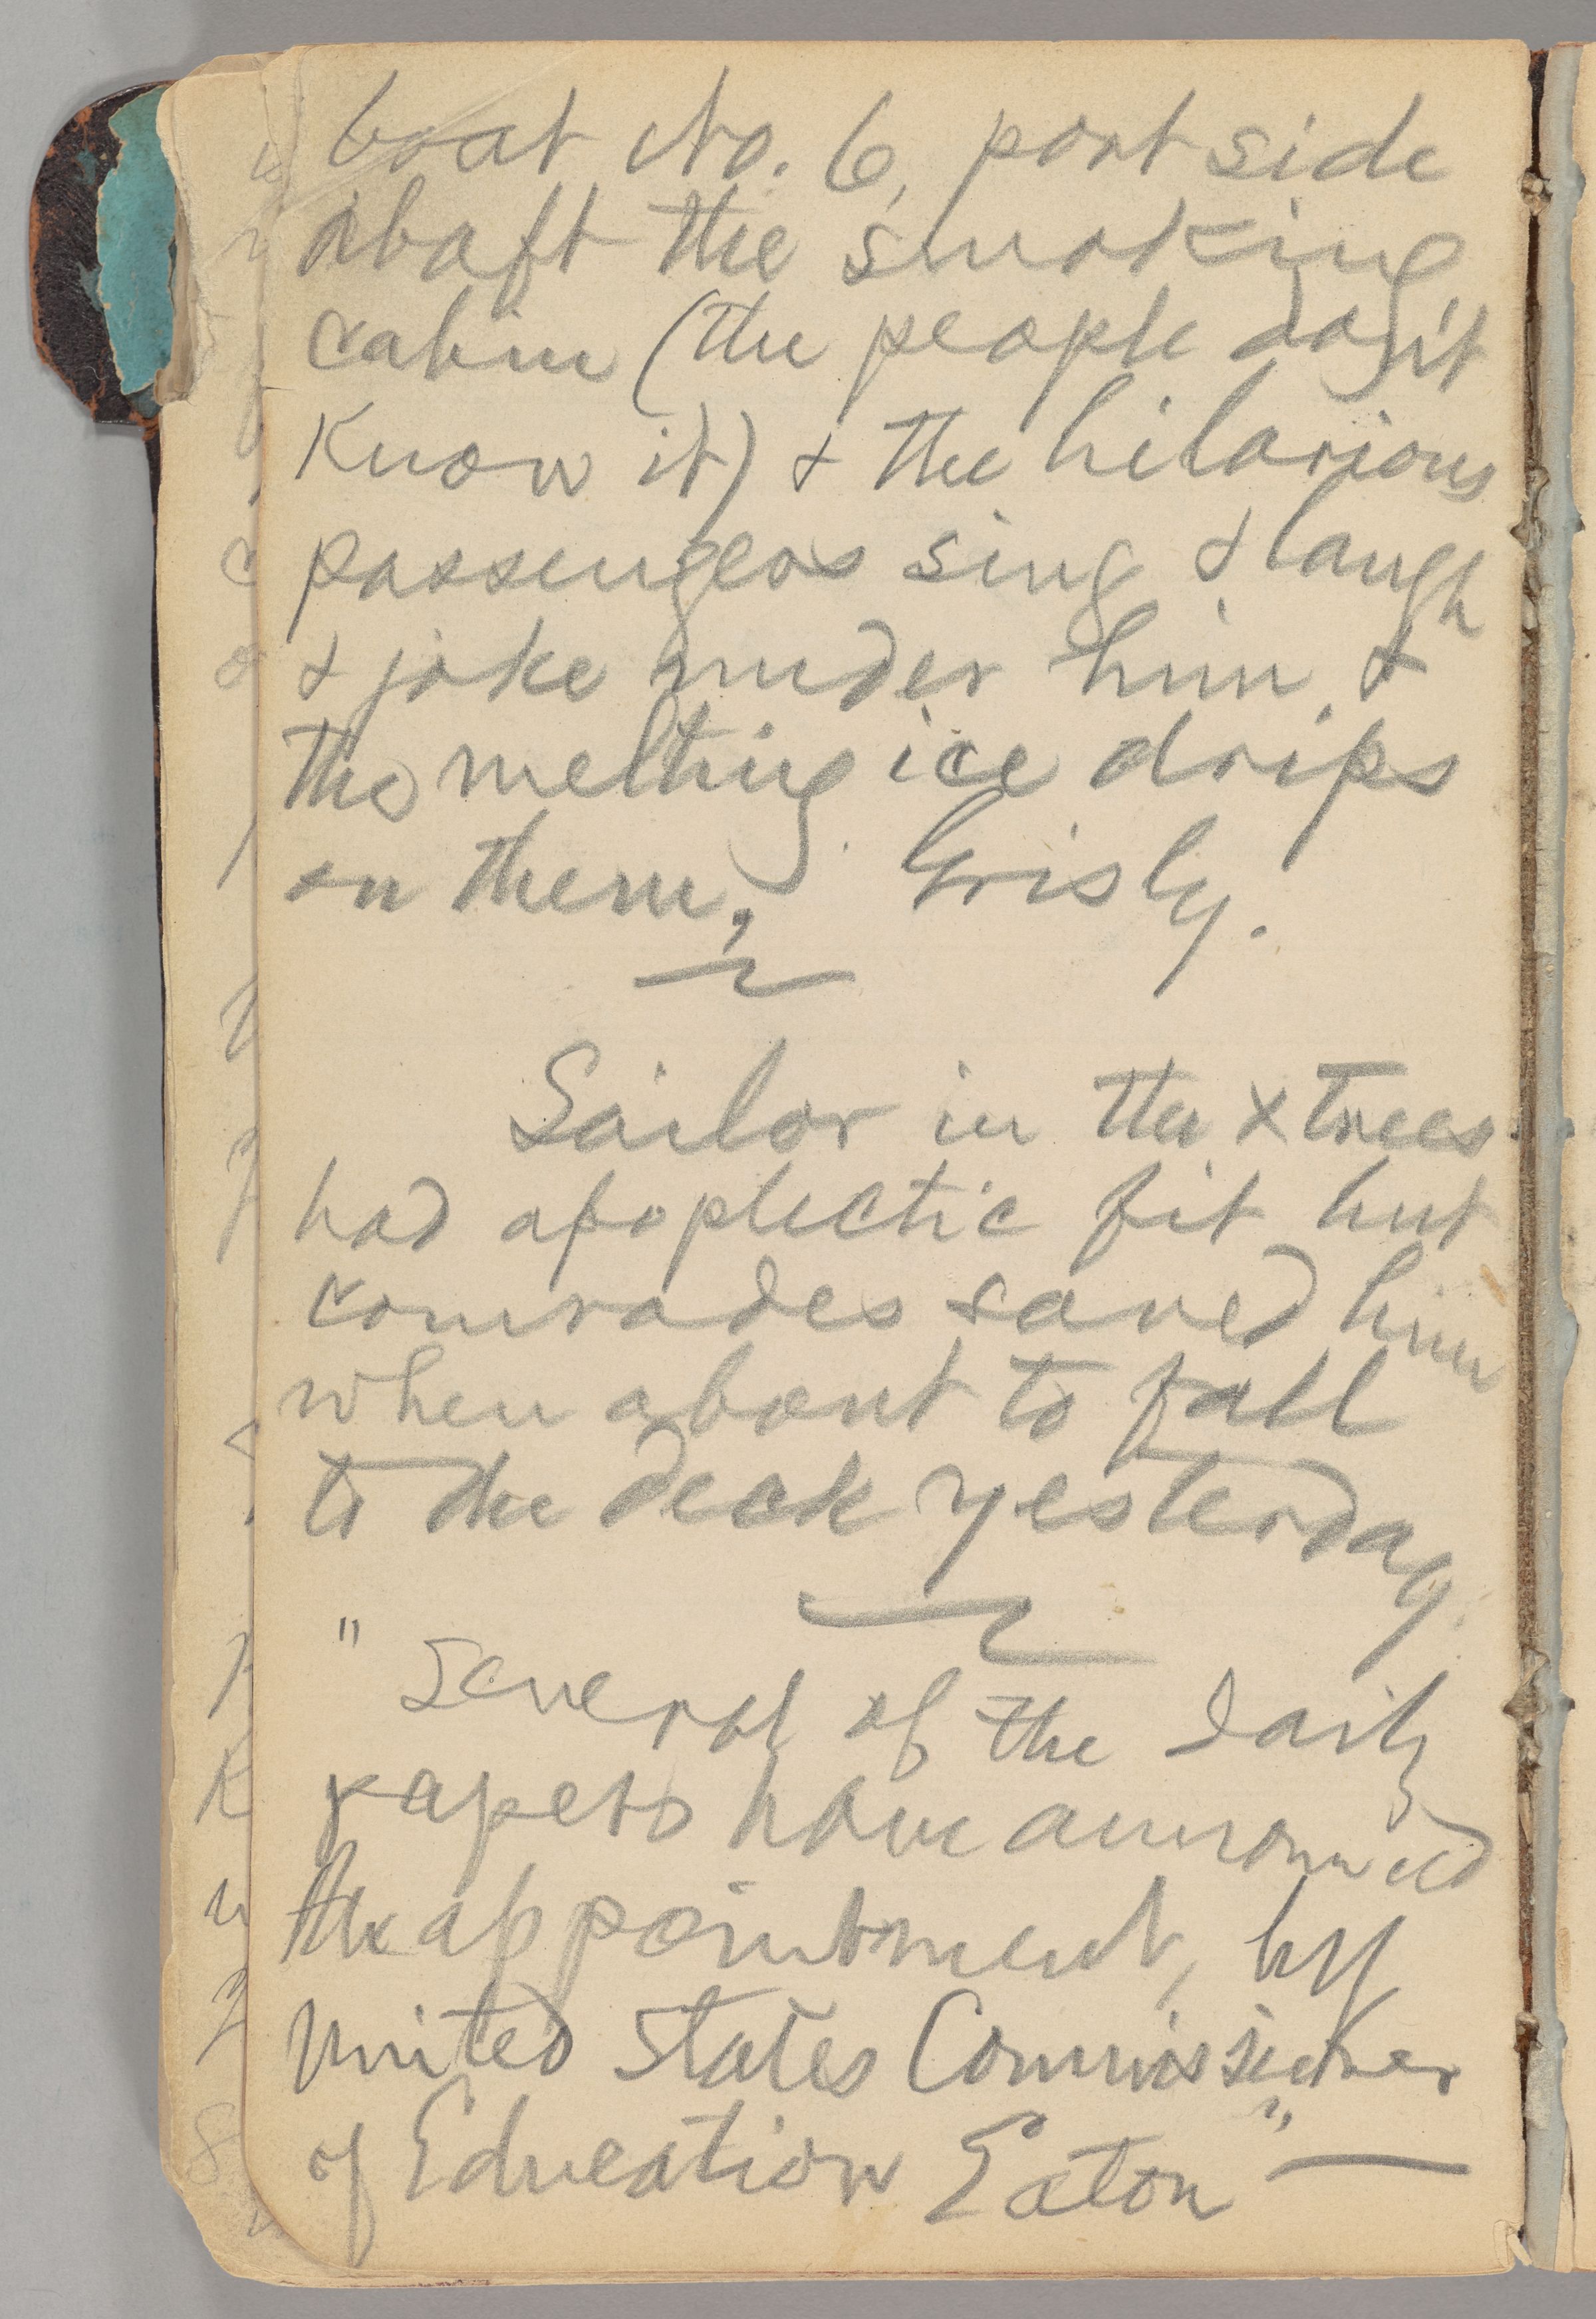 boat No. 6, port side
abaft the smoking
cabin (the people don't
know it) & the hilarious
passengers sing & laugh
& joke under him, &
the melting ice drips
on them, Grisly.
Sailor in the x trees
had apoplectic fit but
comrades saved him
when about to fall
to the deck yesterday.
"Several of the daily
papers have announced
the appointment, by
United States Commissioner
of Education Eaton" —